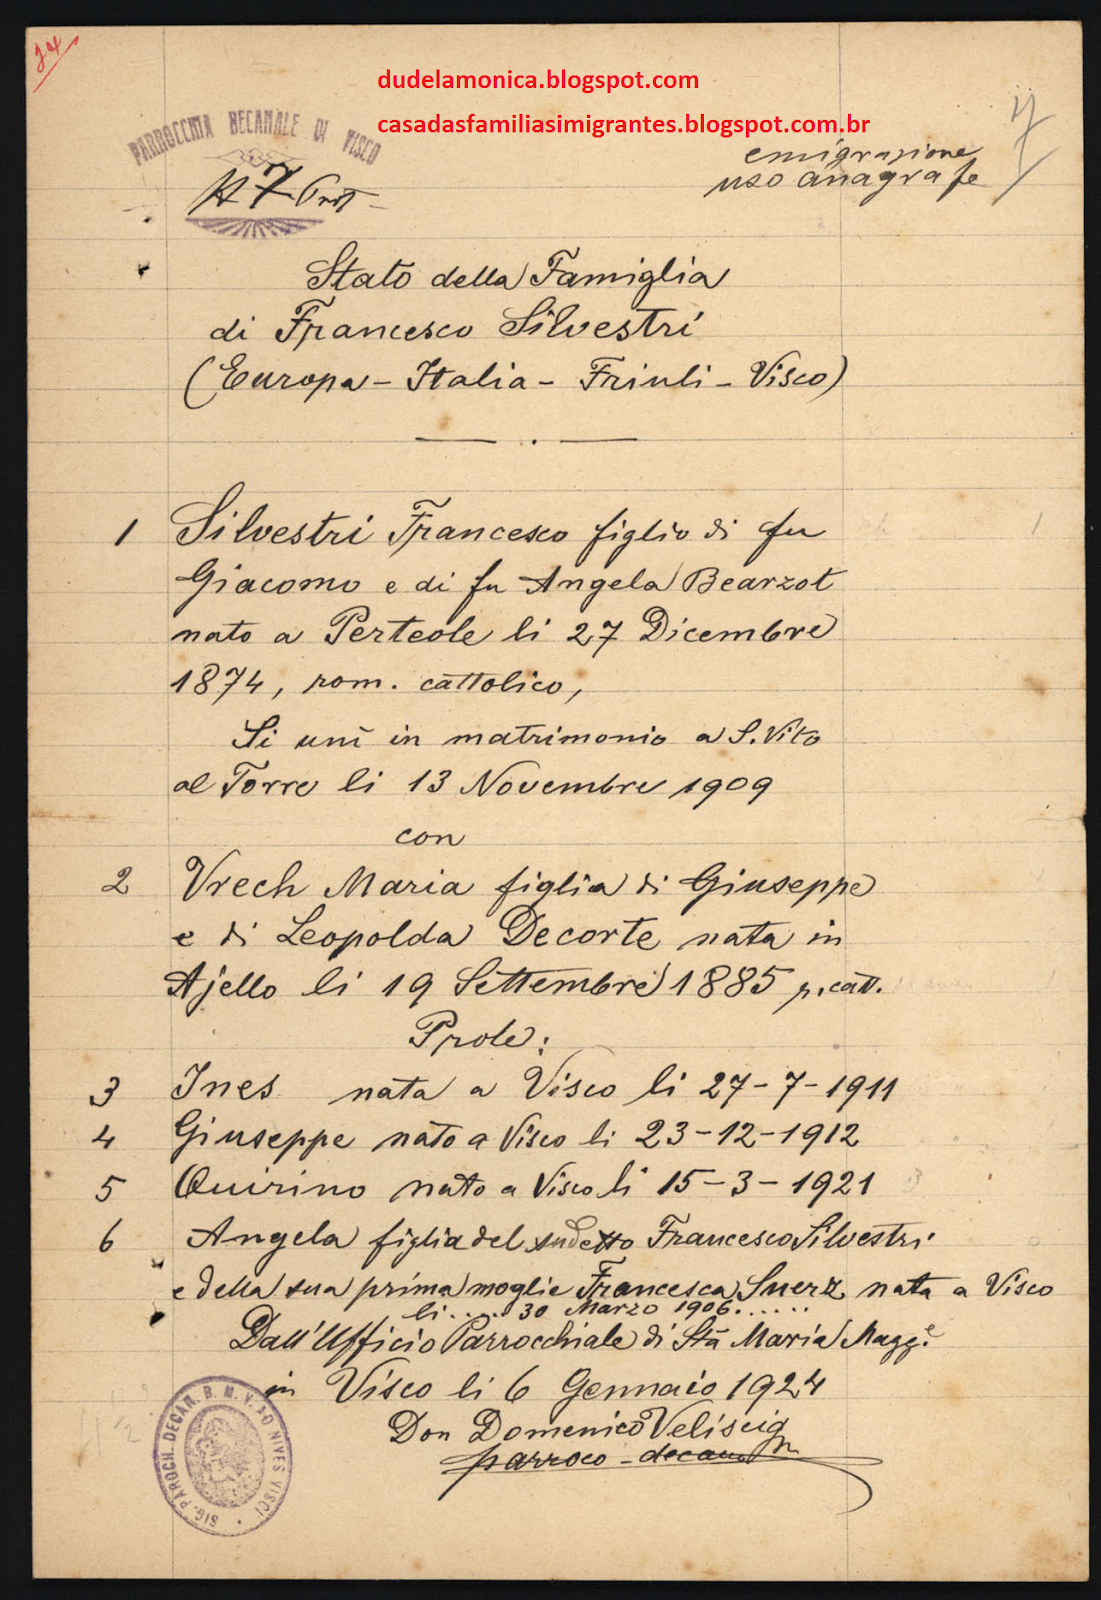 24
dudelamonica.blogspot.com
casadasfamiliasimigrantes.blogspot.com.br
PARROCCHIA DECANALE DI VISCO
N 7 Prot
emigrazione
uso anagrafe
Stato della Famiglia
di Francesco Silvestri
(Europa - Italia - Friuli - Visco)
1 Silvestri Francesco figlio di fu
Giacomo e di fu Angela Bearzot
nato a Perteole li 27 Dicembre
1874, rom. cattolico,
Si unì in matrimonio a S. Vito
al Torre li 13 Novembre 1909
con
2 Vrech Maria figlia di Giuseppe
e di Leopolda Decorte nata in
Ajello li 19 Settembre 1885 r. catt.
Prole:
3 Ines nata a Visco li 27-7-1911
4 Giuseppe nato a Visco li 23-12-1912
5 Quirino nato a Visco li 15-3-1921
6 Angela figlia del sudetto Francesco Silvestri
e della sua prima moglie Francesca Snerz nata a Visco
li ..... 30 Marzo 1906 ......
Dall'Ufficio Parrocchiale di Sta Maria Magg.e
in Visco li 6 Gennaio 1924
Don Domenico Veliscig
parroco - decano
SIG. PAROCH. DECAN. B. M. V. AD NIVES VISCI